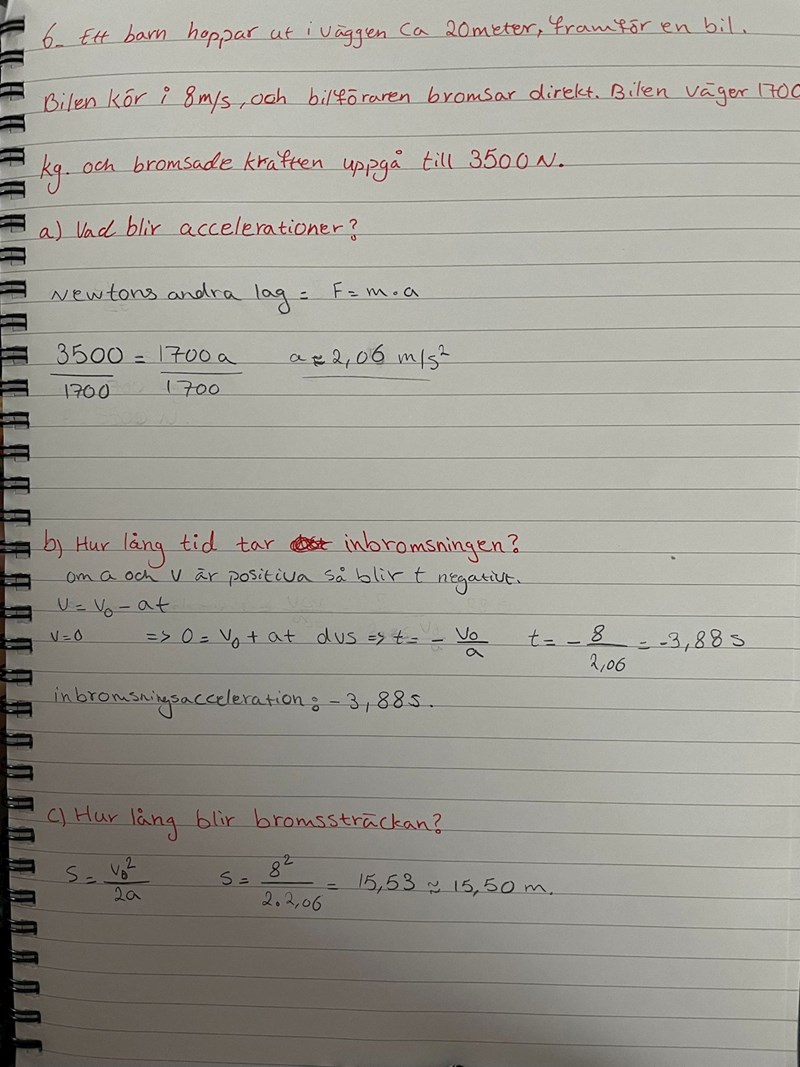 6. Ett barn hoppar ut i väggen ca 20meter, framför en bil.
Bilen kör i 8m/s, och bilföraren bromsar direkt. Bilen väger 1700
kg. och bromsade kraften uppgå till 3500 N.
a) Vad blir accelerationer?
Newtons andra lag = F = m • a
3500/1700 = 1700a/1700 a ≈ 2,06 m/s²
b) Hur lång tid tar inbromsningen?
om a och v är positiva så blir t negativt.
v = v₀ - at
v=0 => 0 = v₀ + at dvs => t = - v₀/a t = - 8/2,06 = -3,88 s
inbromsningsacceleration: -3,88s.
c) Hur lång blir bromssträckan?
s = v₀²/2a s = 8²/2•2,06 = 15,53 ≈ 15,50 m.